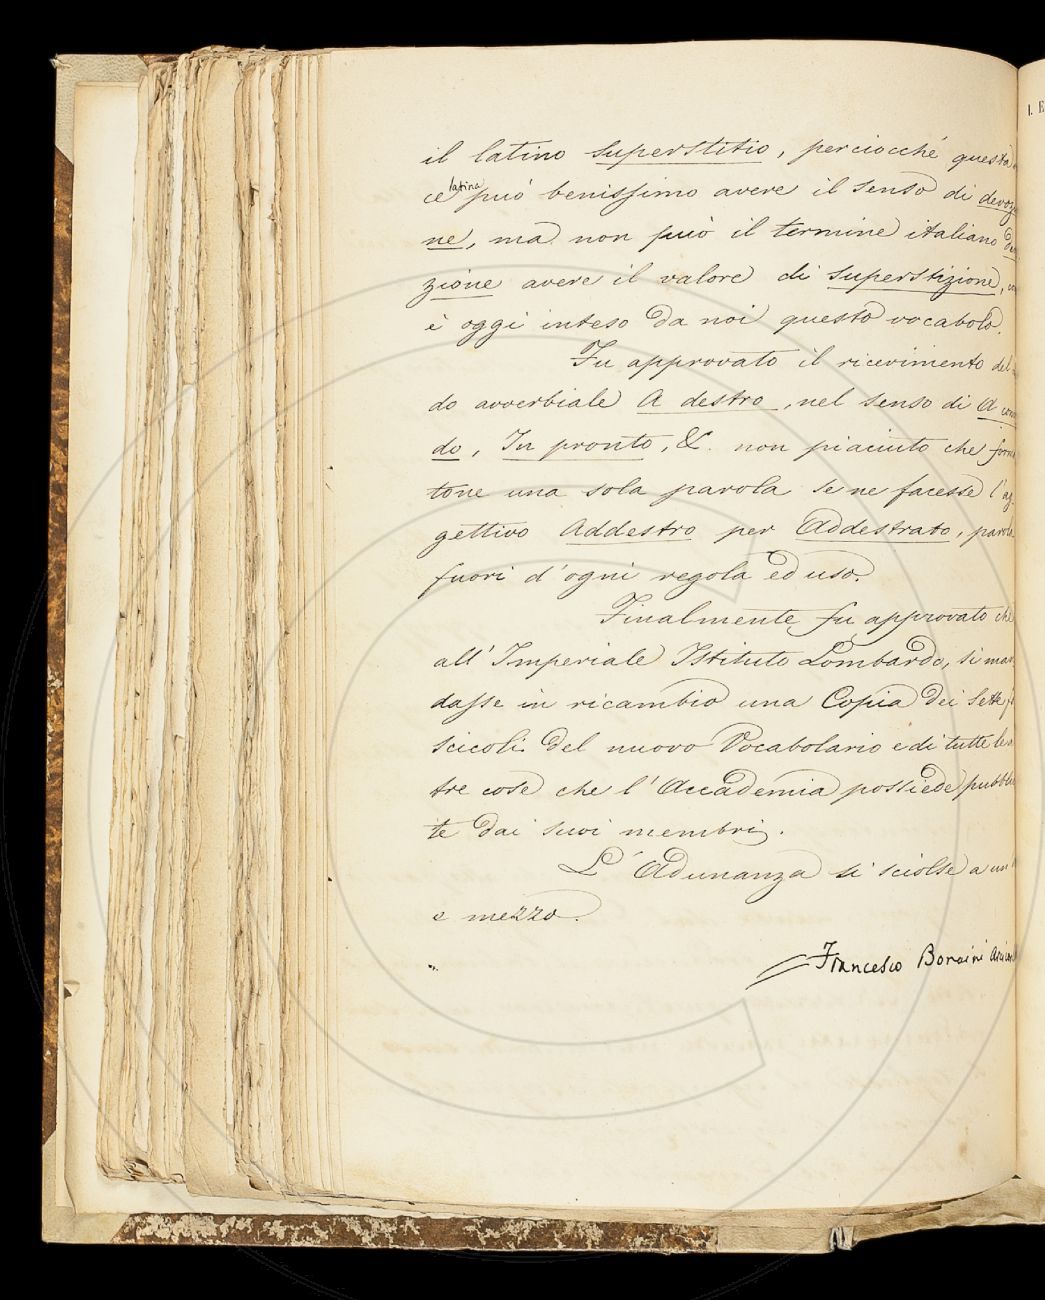 il latino superstitio, perciocché questa
ce latina può benissimo avere il senso di devozio
ne, ma non può il termine italiano
zione avere il valore di superstizione,
è oggi inteso da noi questo vocabolo.
Fu approvato il ricevimento del
do avverbiale A destro, nel senso di A com
do, In pronto, &. non piaciuto che
tone una sola parola se ne facesse l'ag
gettivo Addestro per Addestrato, parola
fuori d'ogni regola ed uso.
Finalmente fu approvato che
all' Imperiale Istituto Lombardo, si man
dasse in ricambio una Copia dei sette
scicoli del nuovo Vocabolario e di tutte le
tre cose che l'Accademia possiede pubbl
te dai suoi membri.
L'Adunanza si sciolse a un
e mezzo.
Francesco Boncini
I. E